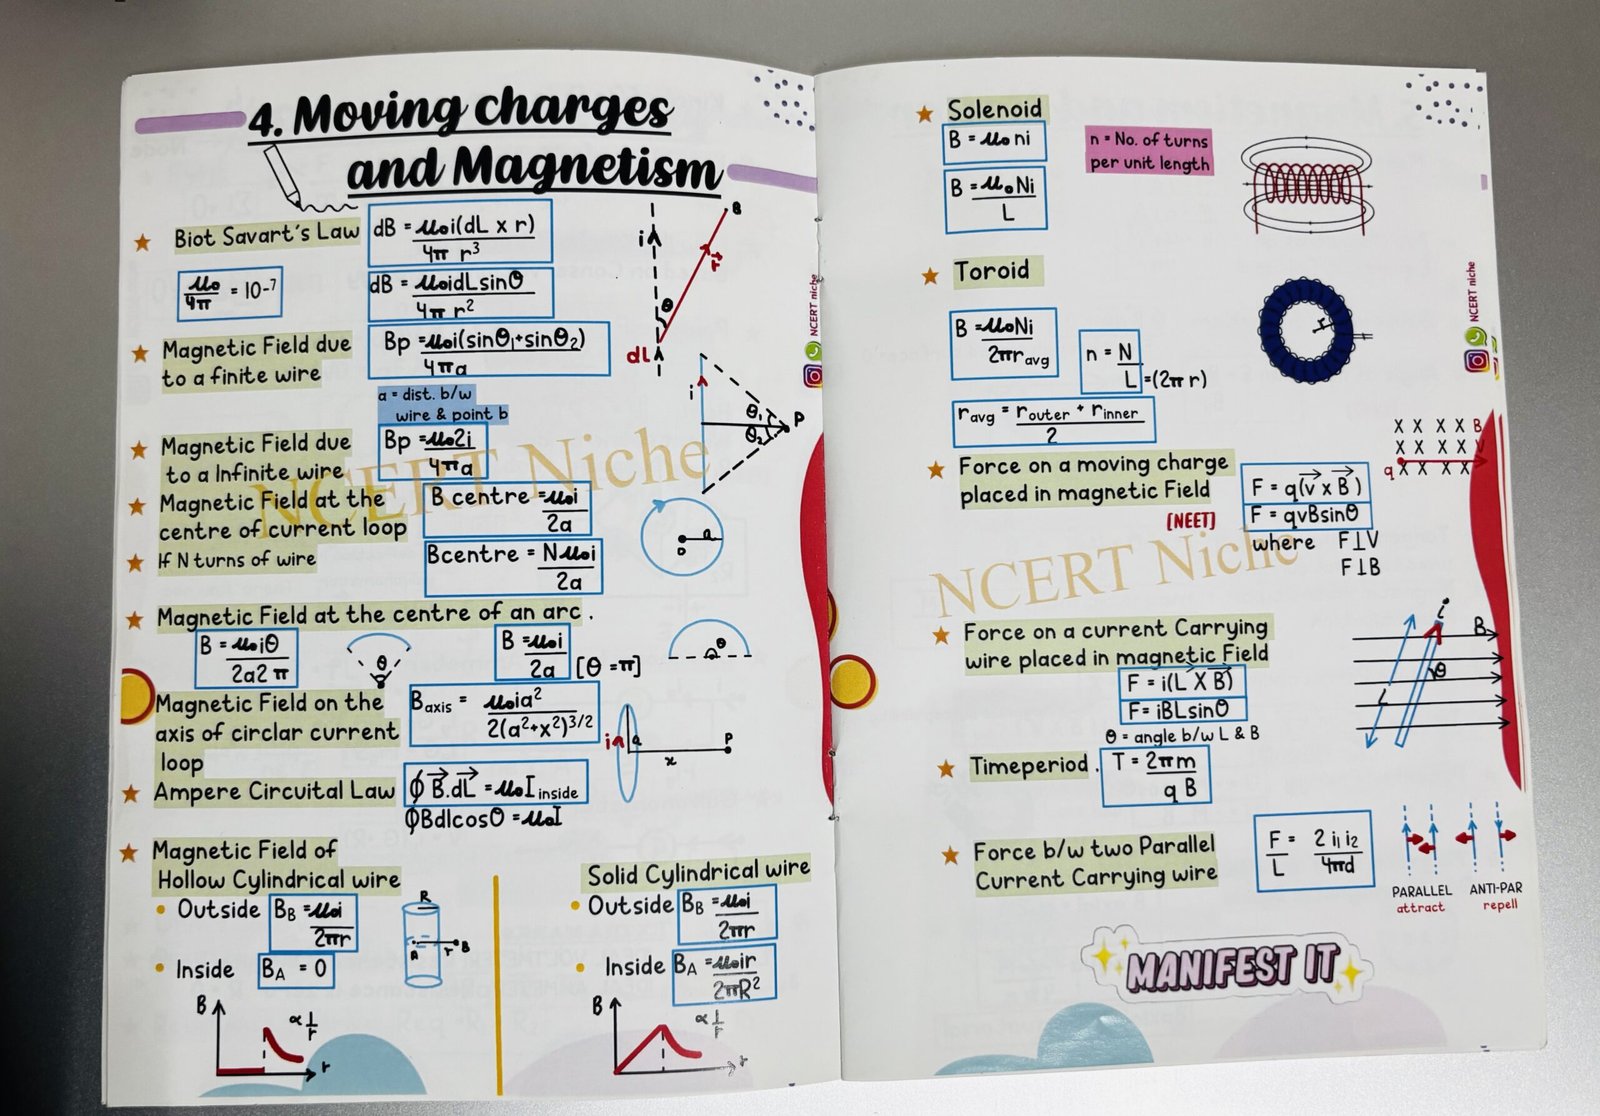 4. Moving charges
and Magnetism
Biot Savart's Law
dB = μ₀i(dL x r)
4π r³
μ₀
4π
= 10-7
dB = μ₀idLsinθ
4π r²
i
B
r
θ
dL
Magnetic Field due
to a finite wire
Bp = μ₀i(sinθ₁+sinθ₂)
4πa
a = dist. b/w
wire & point b
i
θ₁
θ₂
P
Magnetic Field due
to a Infinite wire
Bp = μ₀2i
4πa
NCERT Niche
Magnetic Field at the
centre of current loop
B centre = μ₀i
2a
a
If N turns of wire
Bcentre = Nμ₀i
2a
Magnetic Field at the centre of an arc .
B = μ₀iθ
2a2π
θ
B = μ₀i
2a
[θ =π]
θ
Magnetic Field on the
axis of circlar current
loop
Baxis = μ₀ia²
2(a²+x²)3/2
i
a
x
P
Ampere Circuital Law
∮ B.dL = μ₀Iinside
∮Bdlcosθ = μ₀I
Magnetic Field of
Hollow Cylindrical wire
Outside BB = μ₀i
2πr
Inside BA = 0
R
A
r
B
B
α 1
r
r
Solid Cylindrical wire
Outside BB = μ₀i
2πr
Inside BA = μ₀ir
2πR²
B
α 1
r
r
NCERT niche
Solenoid
B = μ₀ ni
n = No. of turns
per unit length
B = μ₀Ni
L
Toroid
B = μ₀Ni
2πravg
n = N
L =(2π r)
ravg = router + rinner
2
NCERT niche
Force on a moving charge
placed in magnetic Field
[NEET]
F = q(v x B)
F = qvBsinθ
where F⊥V
F⊥B
X X X X B
X X X X V
q X X X X
NCERT Niche
Force on a current Carrying
wire placed in magnetic Field
F = i(L X B)
F= iBLsinθ
θ = angle b/w L & B
i
B
θ
L
Timeperiod . T = 2πm
q B
Force b/w two Parallel
Current Carrying wire
F = 2 i₁ i₂
L 4πd
PARALLEL
attract
ANTI-PAR
repell
MANIFEST IT